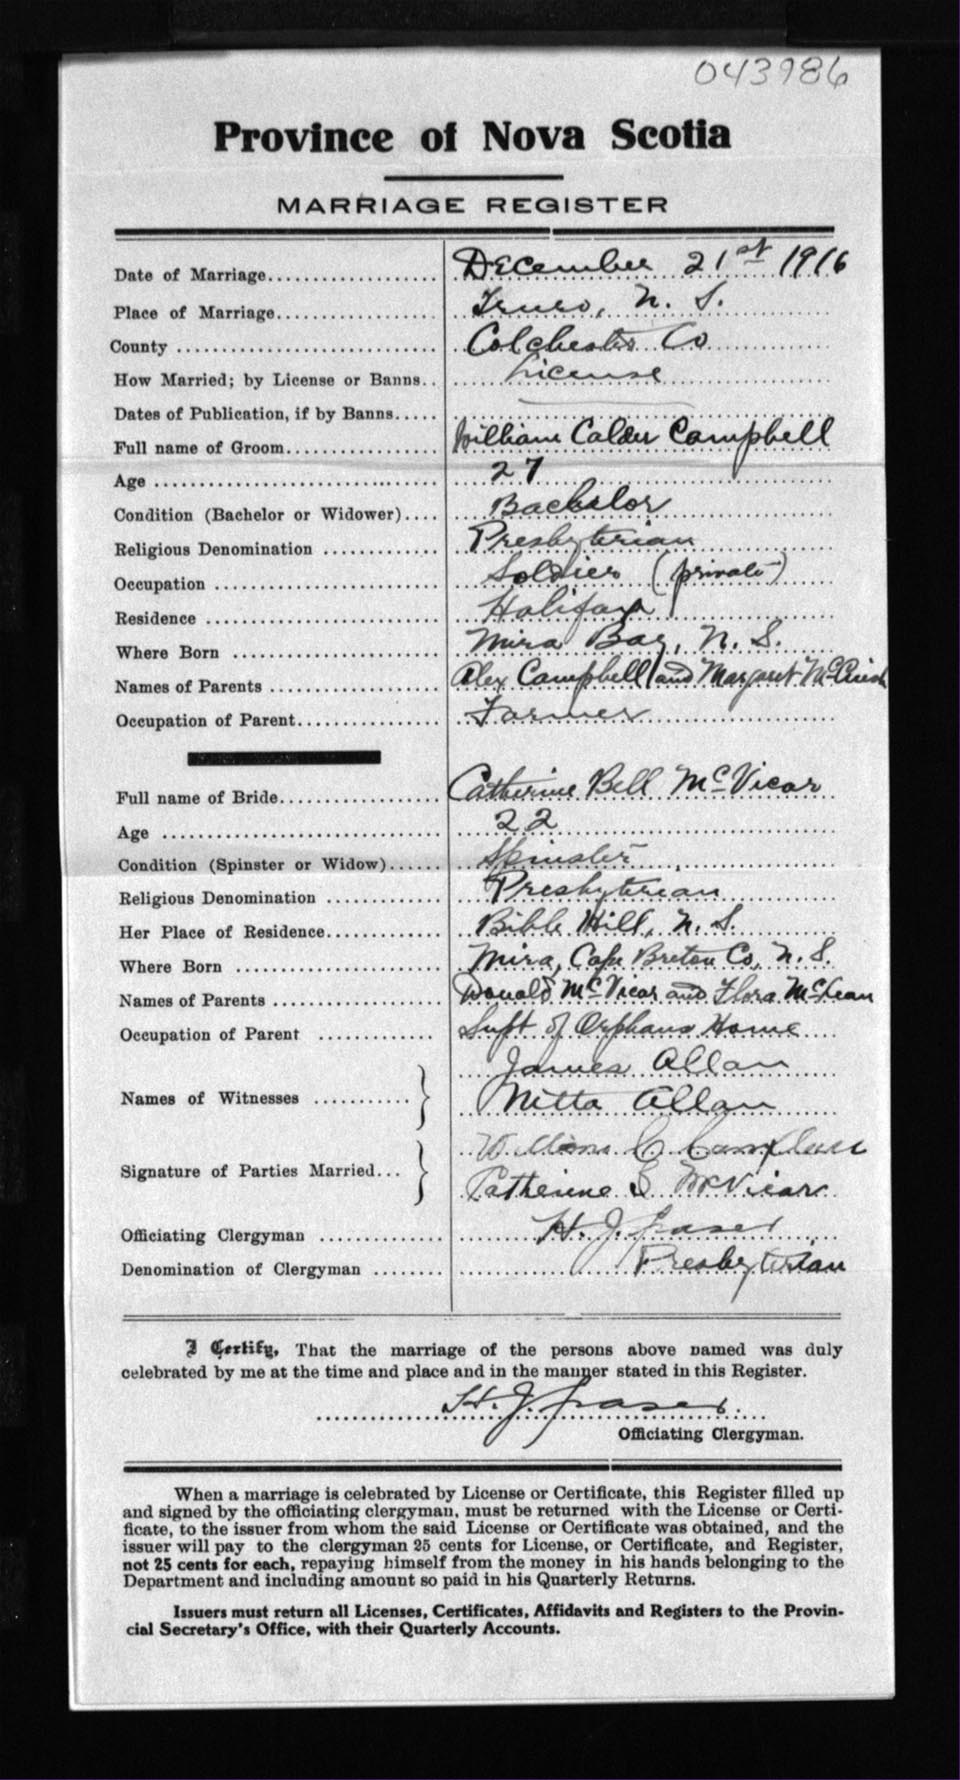 043986
Province of Nova Scotia
MARRIAGE REGISTER
Date of Marriage.................... December 21st 1916
Place of Marriage................... Truro, N. S.
County .............................. Colchester Co
How Married; by License or Banns.. License
Dates of Publication, if by Banns.....
Full name of Groom.................. William Calder Campbell
Age ................................. 27
Condition (Bachelor or Widower).... Bachelor
Religious Denomination .............. Presbyterian
Occupation .......................... Soldier (private)
Residence ........................... Halifax
Where Born ........................ Mira Bay, N. S.
Names of Parents .................... Alex Campbell and Margaret
Occupation of Parent................. Farmer
Full name of Bride................... Catherine Bell McVicar
Age ................................ 22
Condition (Spinster or Widow)...... Spinster
Religious Denomination ............. Presbyterian
Her Place of Residence............. Bible Hill, N. S.
Where Born ........................ Mira, Cape Breton Co, N. S.
Names of Parents .................... Donald McVicar and Flora McLean
Occupation of Parent .............. Supt of Orphans Home
James Allan
Names of Witnesses ...........
Nitta Allan
William C Campbell
Signature of Parties Married...
Catherine B McVicar
Officiating Clergyman ............... H. J. Fraser
Denomination of Clergyman ........ Presbyterian
I Certify, That the marriage of the persons above named was duly
celebrated by me at the time and place and in the manner stated in this Register.
H. J. Fraser
Officiating Clergyman.
When a marriage is celebrated by License or Certificate, this Register filled up
and signed by the officiating clergyman, must be returned with the License or Certi-
ficate, to the issuer from whom the said License or Certificate was obtained, and the
issuer will pay to the clergyman 25 cents for License, or Certificate, and Register,
not 25 cents for each, repaying himself from the money in his hands belonging to the
Department and including amount so paid in his Quarterly Returns.
Issuers must return all Licenses, Certificates, Affidavits and Registers to the Provin-
cial Secretary's Office, with their Quarterly Accounts.